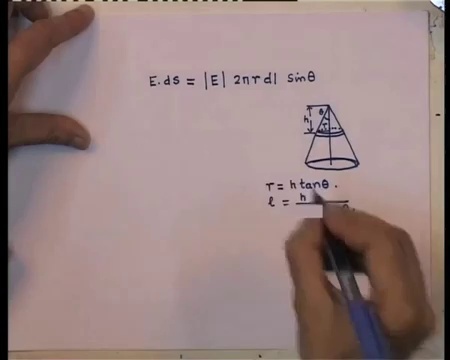 E.ds = |E| 2πr dl sinθ
h
θ
r
r = h tanθ.
l = h